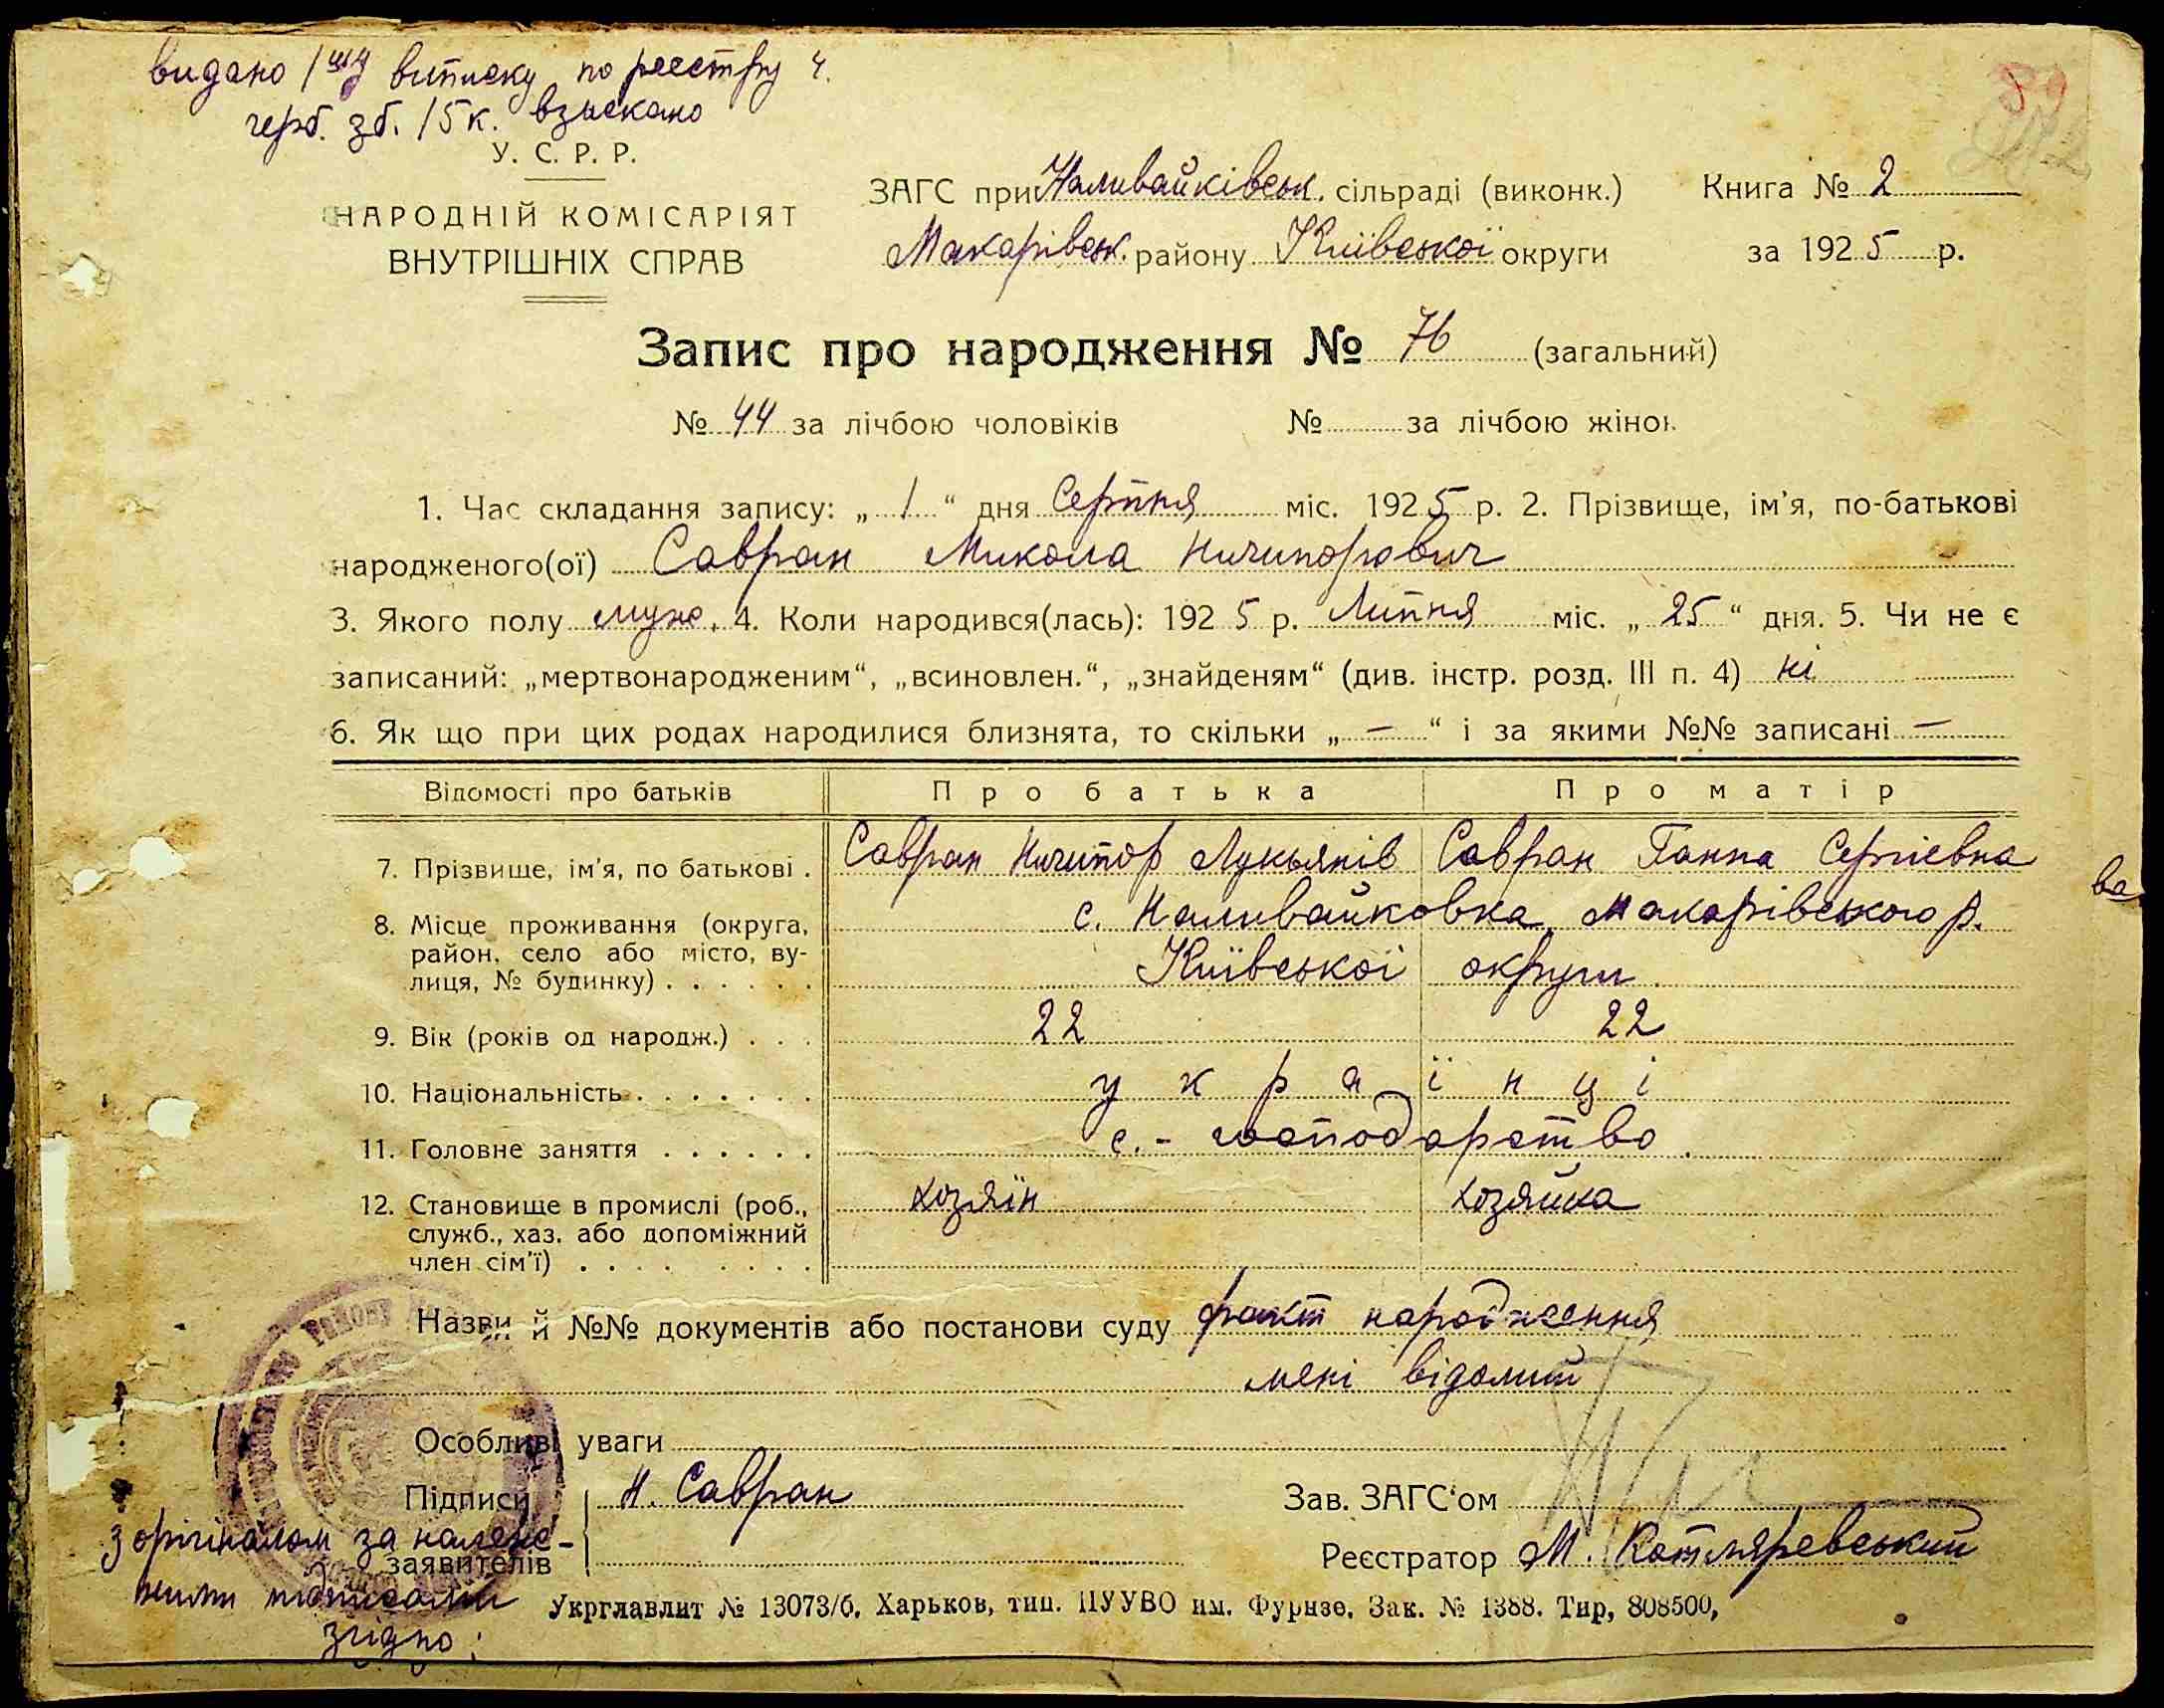 видано 1шу виписку по реєстру ч.
герб. зб. 15 к. взыскано
89
У. С. Р. Р.
НАРОДНІЙ КОМІСАРІЯТ
ВНУТРІШНІХ СПРАВ
ЗАГС при Наливайківськ. сільраді (виконк.) Книга № 2
Макарівськ. району Київської округи за 1925 р.
Запис про народження № 76 (загальний)
№ 44 за лічбою чоловіків № за лічбою жінок
1. Час складання запису: „ 1 “ дня Серпня міс. 1925 р. 2. Прізвище, ім'я, по-батькові
народженого(ої) Савран Микола Ничипорович
3. Якого полу муж. 4. Коли народився(лась): 1925 р. Липня міс. „ 25 “ дня. 5. Чи не є
записаний: „мертвонародженим“, „всиновлен.“, „знайденям“ (див. інстр. розд. III п. 4) ні
6. Як що при цих родах народилися близнята, то скільки „ — “ і за якими №№ записані —
Відомості про батьків Про батька Про матір
7. Прізвище, ім'я, по батькові . Савран Ничипор Лукьянів Савран Ганна Сергіевна
ва
8. Місце проживання (округа, с. Наливайковка, Макарівського р.
район, село або місто, ву-
лиця, № будинку) . . . . . . Київської округи
9. Вік (років од народж.) . . . 22 22
10. Національність . . . . . . . українці
11. Головне заняття . . . . . . с.-господарство
12. Становище в промислі (роб., хозяїн хозяйка
служб., хаз. або допоміжний
член сім'ї) . . . . . . . .
Назви й №№ документів або постанови суду факт народження
мені відомий
Особливі уваги
Підписи Н. Савран Зав. ЗАГС'ом
заявителів Реєстратор М. Котляревський
з орігіналом за належ-
ними підписами
згідно:
Укрглавлит № 13073/б. Харьков, тип. ПУУВО им. Фрунзе. Зак. № 1388. Тир, 808500,
району